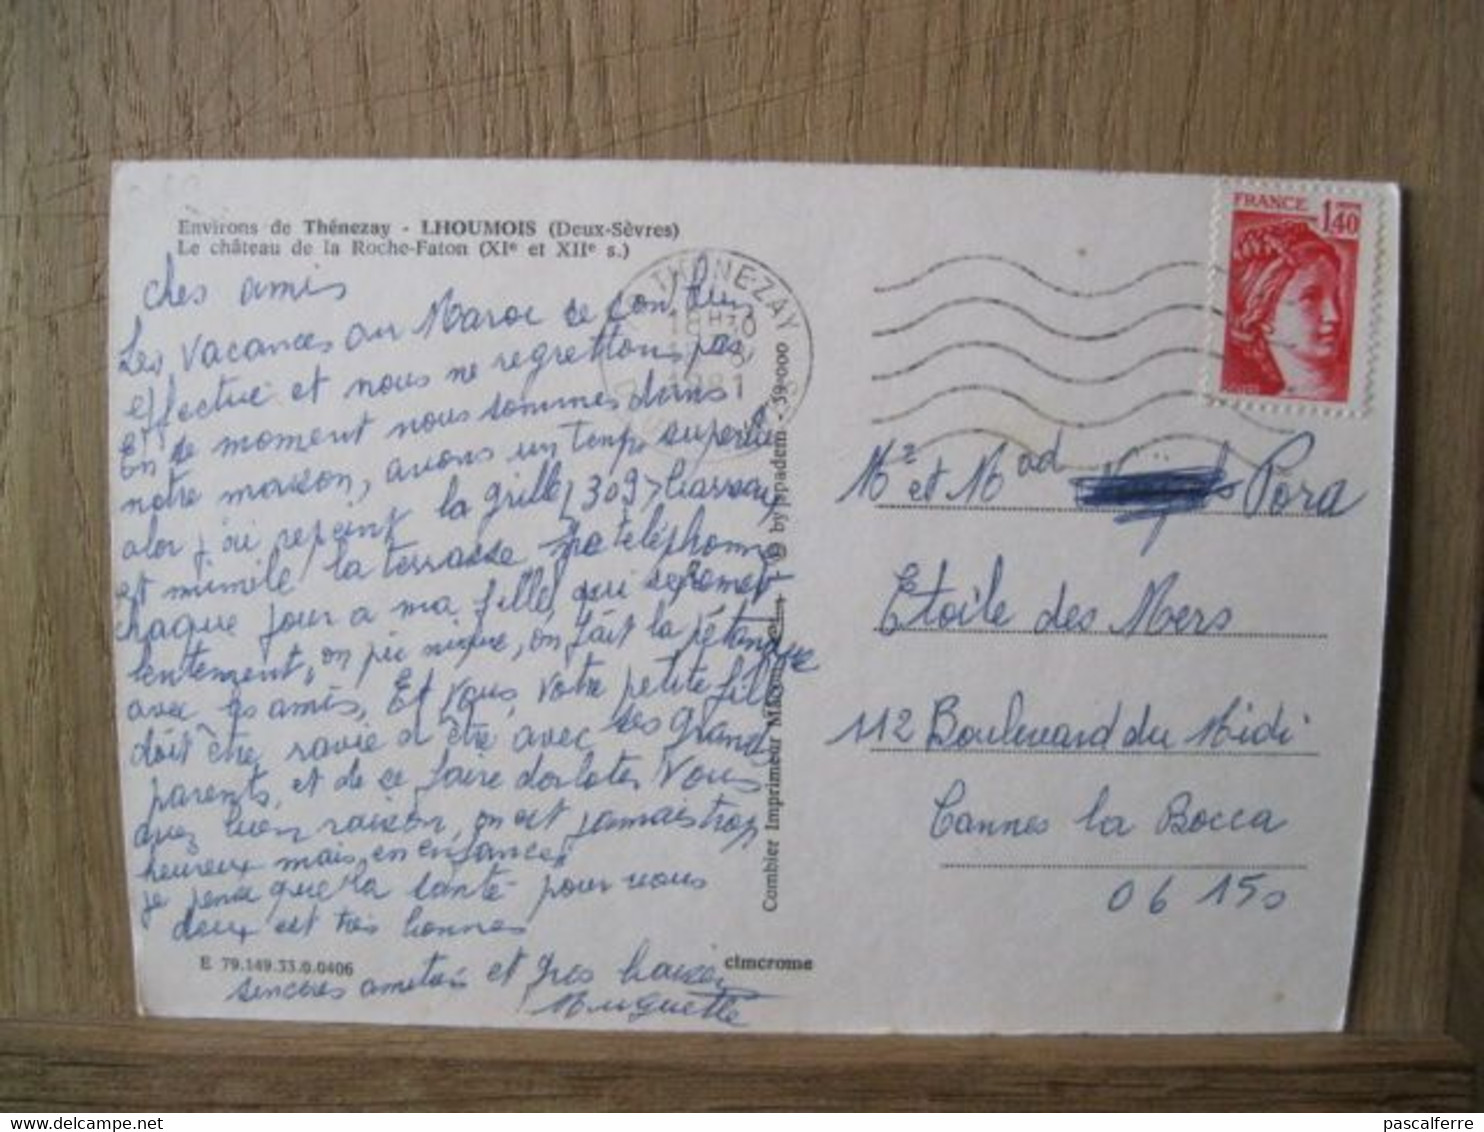 Environs de Thénezay - LHOUMOIS (Deux-Sèvres)
Le château de la Roche-Faton (XIe et XIIe s.)
Ches amis
Les vacances au Maroc se son
effectué et nous ne regrettons pas,
En se moment nous sommes dans
notre maison, avons un temps superbe
alor j'ai repeint la grille
et mimile la terrasse, téléphone
chaque jour a ma fille, qui se remet
lentement, on pic nique, on fait la pétanque
avec amis, Et vous, votre petite fille
doit être ravie d'être avec ses grands
parents, et de se faire dorloter Vous
avez bien raison, on est jamais trop
heureux mais, en enfance,
je pense que la santé pour vous
deux est très bonnes
E 79.149.33.0.0406
cimcrome
sincères amitiés et gros baisers
Muguette
Combier Imprimeur by spadem - 39.000
THENEZAY
18H
1981
FRANCE 1,40
Mr et Mad Pora
Etoile des Mers
112 Boulevard du Midi
Cannes la Bocca
06 150
delcampe.net
pascalferre